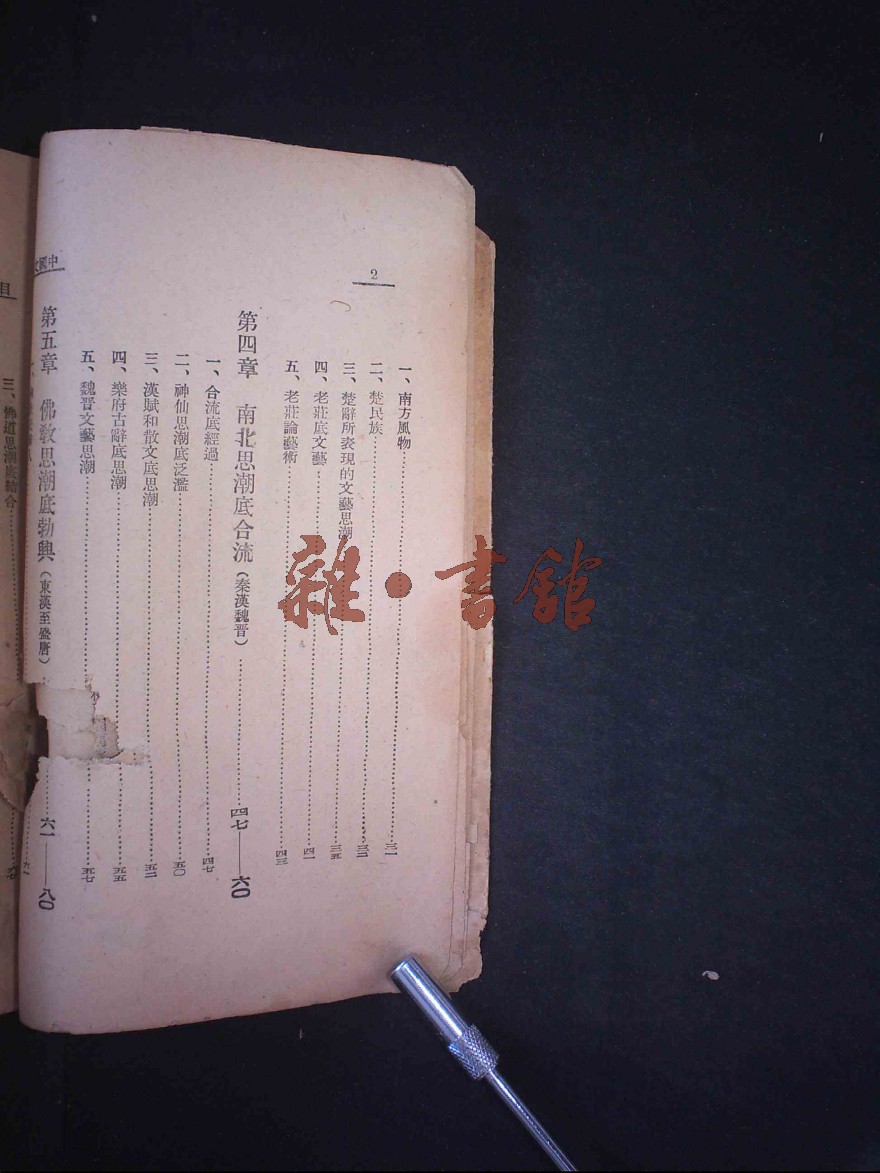 2
一、南方風物……三一
二、楚民族……三二
三、楚辭所表現的文藝思潮……三五
四、老莊底文藝……四一
五、老莊論藝術……四三
第四章 南北思潮底合流(秦漢魏晉)……四七——六〇
一、合流底經過……四七
二、神仙思潮底泛濫……五〇
三、漢賦和散文底思潮……五二
四、樂府古辭底思潮……五五
五、魏晉文藝思潮……五七
第五章 佛敎思潮底勃興(東漢至盛唐)……六一——八〇
中國
目
三、佛道思潮底結合……
雜·書館